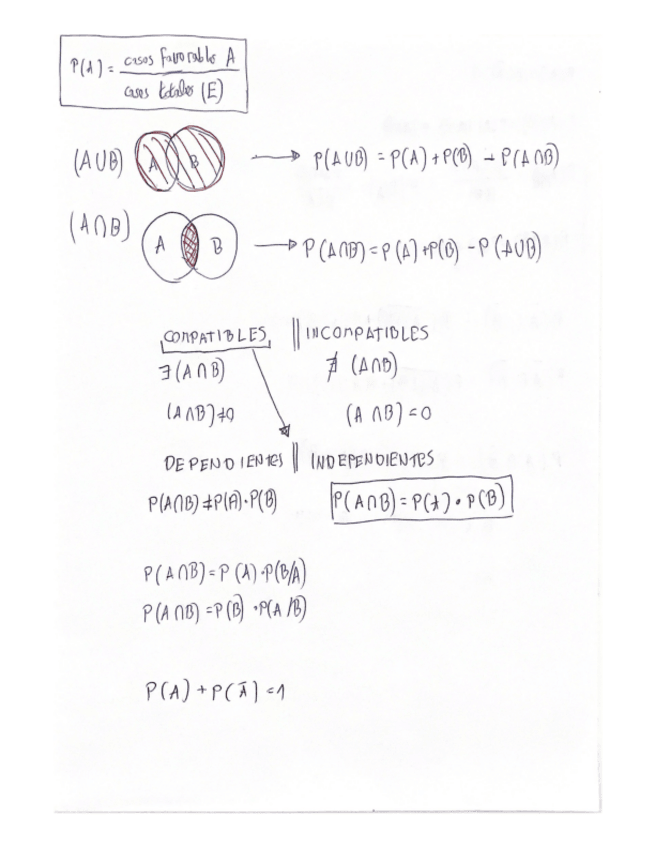 P(A) = casos favorable A
casos totales (E)
(A∪B) A B → P(A∪B) = P(A) + P(B) - P(A∩B)
(A∩B) A B → P(A∩B) = P(A) + P(B) - P(A∪B)
COMPATIBLES || INCOMPATIBLES
∃ (A∩B) ∄ (A∩B)
(A∩B) ≠ 0 (A∩B) = 0
DEPENDIENTES || INDEPENDIENTES
P(A∩B) ≠ P(A)·P(B) P(A∩B) = P(A) · P(B)
P(A∩B) = P(A)·P(B/A)
P(A∩B) = P(B)·P(A/B)
P(A) + P(Ā) = 1